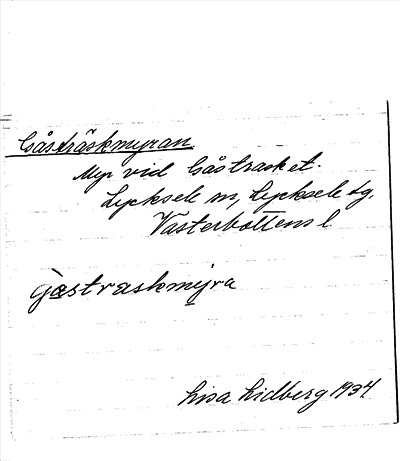 Gåsträskmyran
Myr vid Gåsträsket.
Lycksele sn, Lycksele lg,
Västerbottens l.
gåstraskmyra
Lisa Lidberg 1934